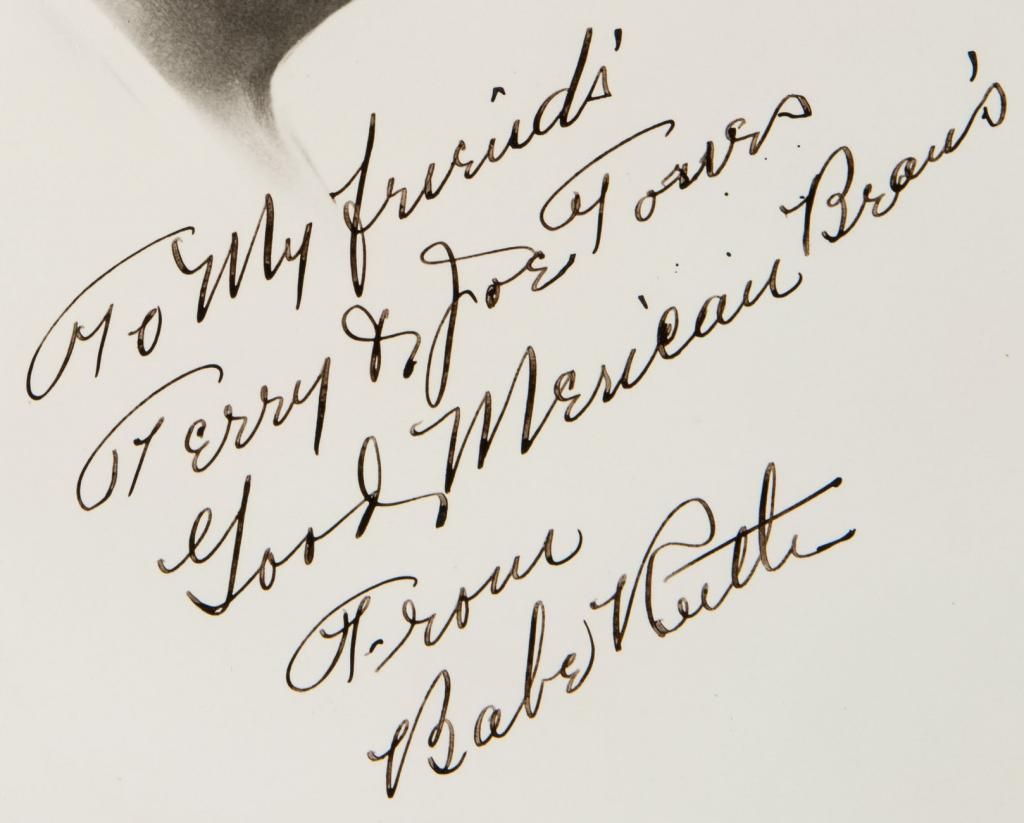 To My friends'
Terry & Joe
Good Merican
From
Babe Ruth